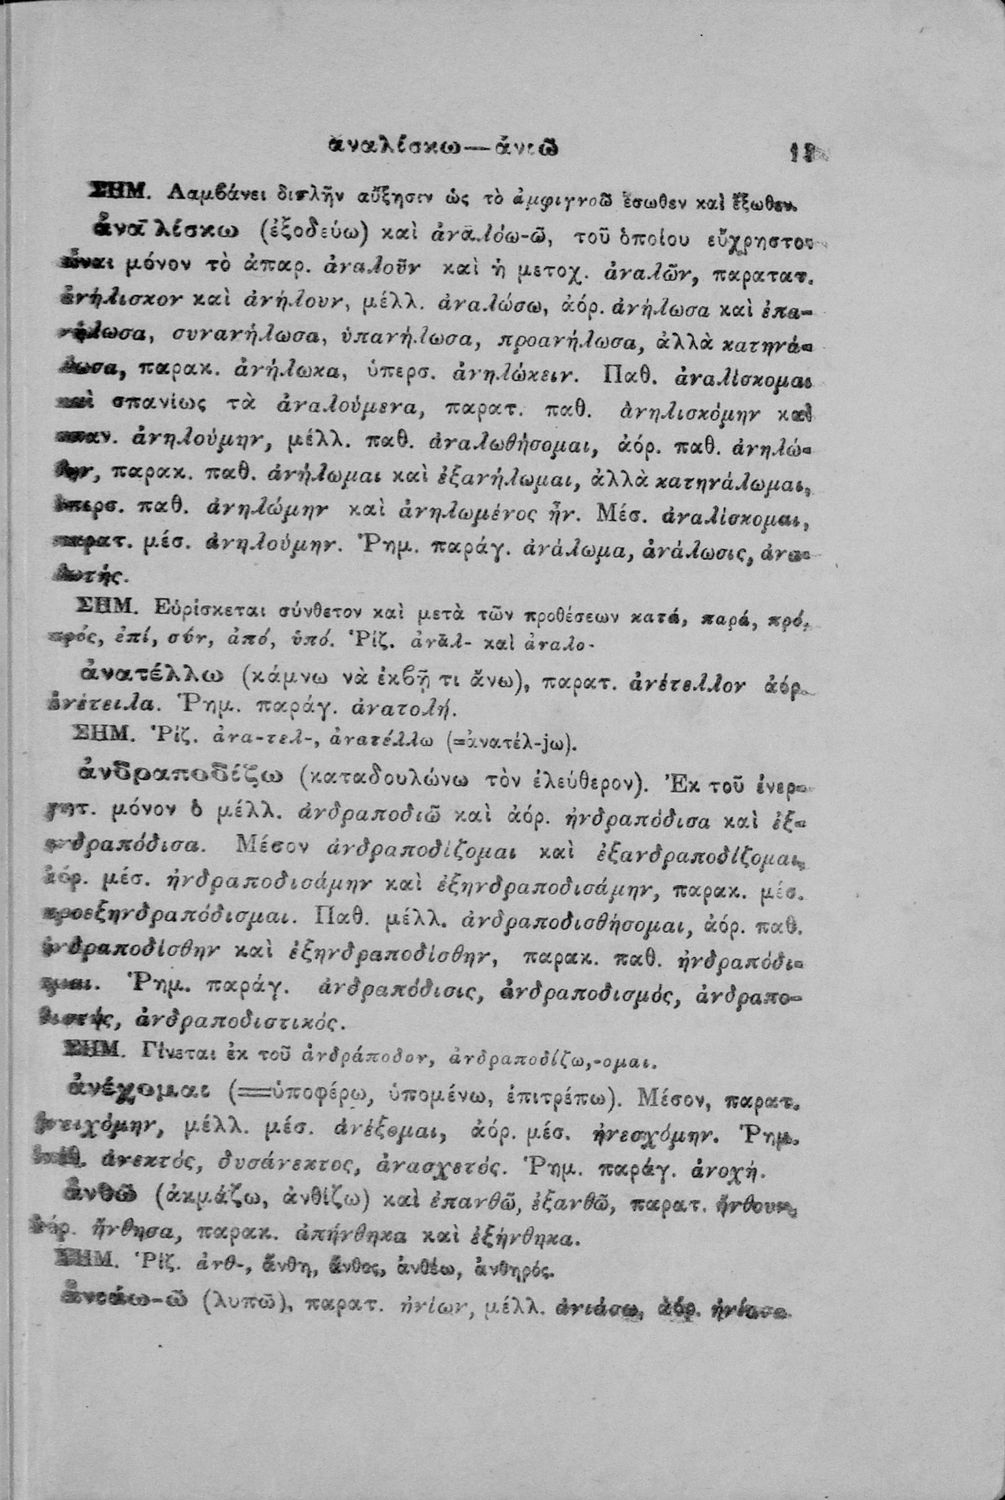 ἀναλίσκω—ἀνιῶ 13
ΣΗΜ. Λαμβάνει διπλῆν αὔξησιν ὡς τὸ ἀμφιγνοῶ ἔσωθεν καὶ ἔξωθεν.
ἀνᾱλίσκω (ἐξοδεύω) καὶ ἀνᾱλόω-ῶ, τοῦ ὁποίου εὔχρηστον
εἶναι μόνον τὸ ἀπαρ. ἀναλοῦν καὶ ἡ μετοχ. ἀναλῶν, παρατατ.
ἀνήλισκον καὶ ἀνήλουν, μέλλ. ἀναλώσω, ἀόρ. ἀνήλωσα καὶ ἐπα-
νήλωσα, συνανήλωσα, ὑπανήλωσα, προανήλωσα, ἀλλὰ κατηνά-
λωσα, παρακ. ἀνήλωκα, ὑπερσ. ἀνηλώκειν. Παθ. ἀναλίσκομαι
καὶ σπανίως τὰ ἀναλούμενα, παρατ. παθ. ἀνηλισκόμην καὶ
σπαν. ἀνηλούμην, μέλλ. παθ. ἀναλωθήσομαι, ἀόρ. παθ. ἀνηλώ-
θην, παρακ. παθ. ἀνήλωμαι καὶ ἐξανήλωμαι, ἀλλὰ κατηνάλωμαι,
ὑπερσ. παθ. ἀνηλώμην καὶ ἀνηλωμένος ἦν. Μέσ. ἀναλίσκομαι,
παρατ. μέσ. ἀνηλούμην. Ῥημ. παράγ. ἀνάλωμα, ἀνάλωσις, ἀνα-
λωτής.
ΣΗΜ. Εὑρίσκεται σύνθετον καὶ μετὰ τῶν προθέσεων κατά, παρά, πρό,
πρός, ἐπί, σύν, ἀπό, ὑπό. Ῥίζ. ἀνᾱλ- καὶ ἀναλο-
ἀνατέλλω (κάμνω νὰ ἐκβῇ τι ἄνω), παρατ. ἀνέτελλον ἀόρ.
ἀνέτειλα. Ῥημ. παράγ. ἀνατολή.
ΣΗΜ. Ῥίζ. ἀνα-τελ-, ἀνατέλλω (=ἀνατέλ-jω).
ἀνδραποδίζω (καταδουλώνω τὸν ἐλεύθερον). Ἐκ τοῦ ἐνερ-
γητ. μόνον ὁ μέλλ. ἀνδραποδιῶ καὶ ἀόρ. ἠνδραπόδισα καὶ ἐξ-
ηνδραπόδισα. Μέσον ἀνδραποδίζομαι καὶ ἐξανδραποδίζομαι,
ἀόρ. μέσ. ἠνδραποδισάμην καὶ ἐξηνδραποδισάμην, παρακ. μέσ.
προεξηνδραπόδισμαι. Παθ. μέλλ. ἀνδραποδισθήσομαι, ἀόρ. παθ.
ἠνδραποδίσθην καὶ ἐξηνδραποδίσθην, παρακ. παθ. ἠνδραπόδι-
σμαι. Ῥημ. παράγ. ἀνδραπόδισις, ἀνδραποδισμός, ἀνδραπο-
διστής, ἀνδραποδιστικός.
ΣΗΜ. Γίνεται ἐκ τοῦ ἀνδράποδον, ἀνδραποδίζω,-ομαι.
ἀνέχομαι (=ὑποφέρω, ὑπομένω, ἐπιτρέπω). Μέσον, παρατ.
ἠνειχόμην, μέλλ. μέσ. ἀνέξομαι, ἀόρ. μέσ. ἠνεσχόμην. Ῥημ.
ἀνεκτός, δυσάνεκτος, ἀνασχετός. Ῥημ. παράγ. ἀνοχή.
ἀνθῶ (ἀκμάζω, ἀνθίζω) καὶ ἐπανθῶ, ἐξανθῶ, παρατ. ἤνθουν,
ἀόρ. ἤνθησα, παρακ. ἀπήνθηκα καὶ ἐξήνθηκα.
ΣΗΜ. Ῥίζ. ἀνθ-, ἄνθη, ἄνθος, ἀνθέω, ἀνθηρός.
ἀνιάω-ῶ (λυπῶ), παρατ. ἠνίων, μέλλ. ἀνιάσω, ἀόρ. ἠνίασα